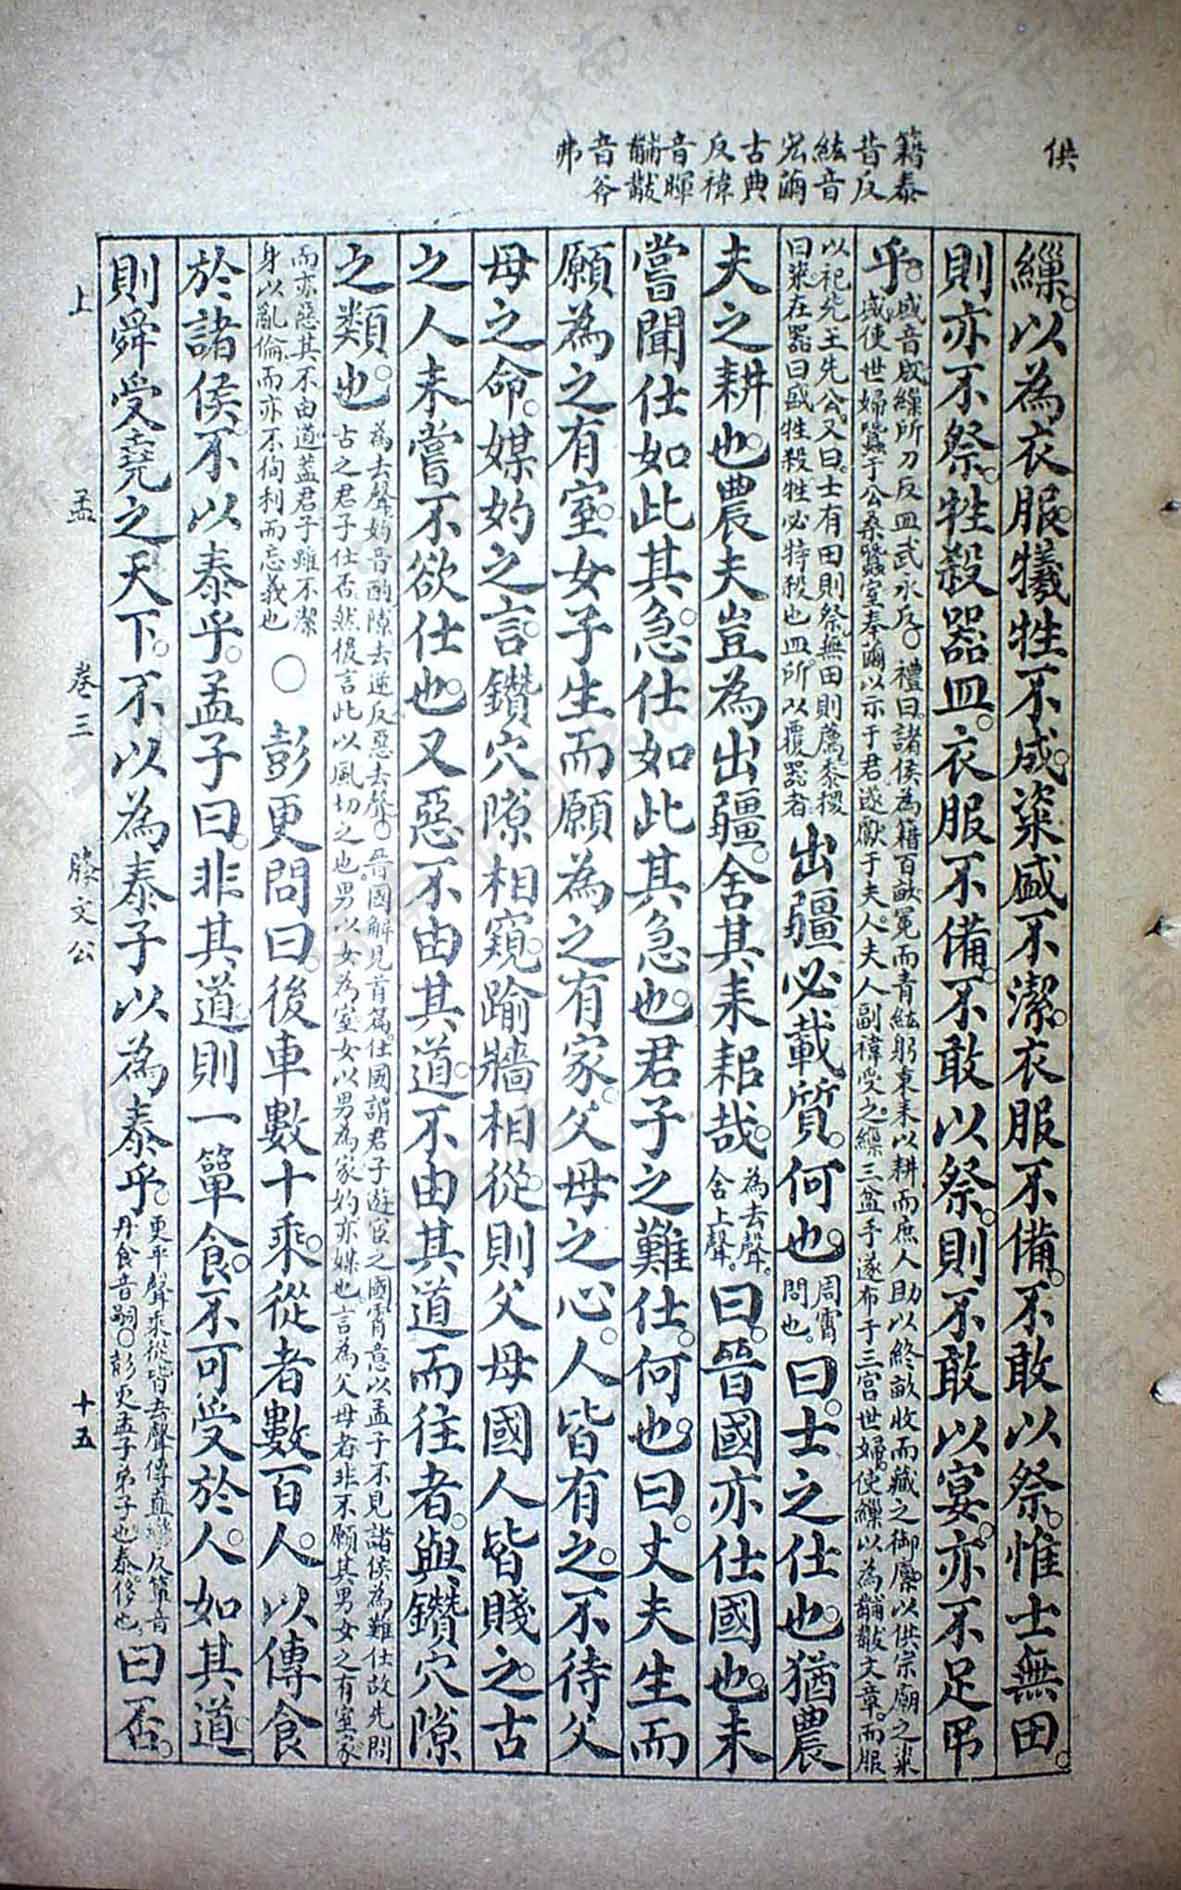 供
籍秦
昔反
紘音
宏繭
古典
反褘
音暉
黼黻
音斧
弗
繅。以為衣服。犧牲不成。粢盛不潔。衣服不備。不敢以祭。惟士無田。
則亦不祭。牲殺器皿。衣服不備。不敢以祭。則不敢以宴。亦不足弔
乎。盛音成繅所刀反皿武永反○禮曰諸侯為籍百畝冕而青紘躬秉耒以耕而庶人助以終畝收而藏之御廩以供宗廟之粢
盛使世婦蠶于公桑蠶室奉繭以示于君遂獻于夫人。夫人副褘受之。繅三盆手遂布于三宮世婦。使繅以為黼黻文章。而服
以祀先王先公。又曰。士有田則祭無田則薦黍稷
曰粢在器曰盛牲殺牲必特殺也皿所以覆器者出疆必載質。何也。周霄問也。曰。士之仕也。猶農
夫之耕也。農夫豈為出疆。舍其耒耜哉。為去聲。舍上聲。曰。晉國亦仕國也。未
嘗聞仕如此其急。仕如此其急也。君子之難仕。何也。曰。丈夫生而
願為之有室。女子生而願為之有家。父母之心。人皆有之。不待父
母之命。媒妁之言。鑽穴隙相窺。踰牆相從。則父母國人皆賤之。古
之人未嘗不欲仕也。又惡不由其道。不由其道而往者。與鑽穴隙
之類也。為去聲妁音酌隙去逆反惡去聲○晉國解見首篇。仕國謂君子遊宦之國霄意以孟子不見諸侯為難仕故先問
古之君子仕否。然後言此以風切之也。男以女為室女以男為家妁亦媒也言為父母者非不願其男女之有室家
而亦惡其不由道蓋君子雖不潔
身以亂倫而亦不徇利而忘義也○彭更問曰。後車數十乘。從者數百人。以傳食
於諸侯。不以泰乎。孟子曰。非其道則一簞食。不可受於人。如其道。
則舜受堯之天下。不以為泰子以為泰乎。更平聲乘從皆去聲傳直戀反簞音
丹食音嗣○彭更孟子弟子也泰侈也曰否。
上 孟 卷三 滕文公 十五